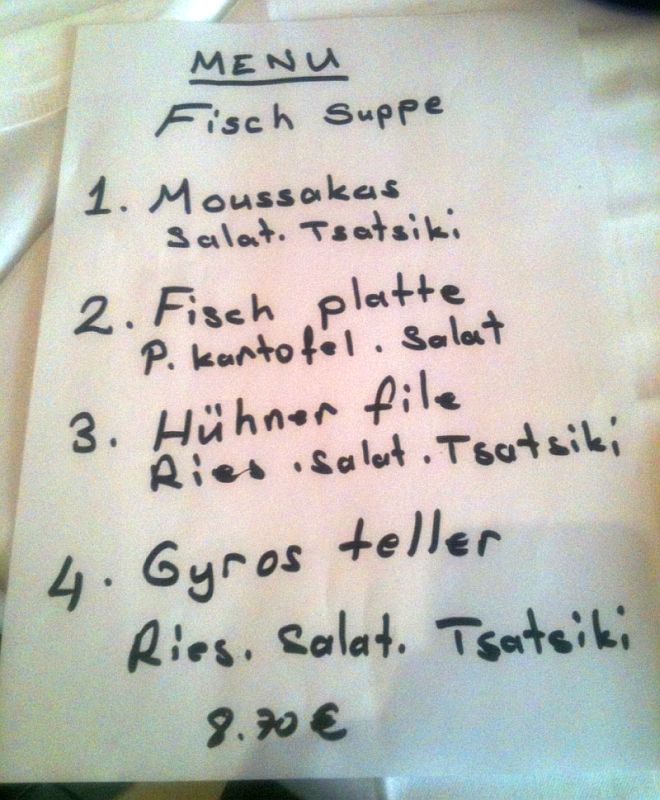 MENU
Fisch Suppe
1. Moussakas
Salat. Tsatsiki
2. Fisch platte
P. kartofel. Salat
3. Hühner file
Ries. Salat. Tsatsiki
4. Gyros teller
Ries. Salat. Tsatsiki
8.70€